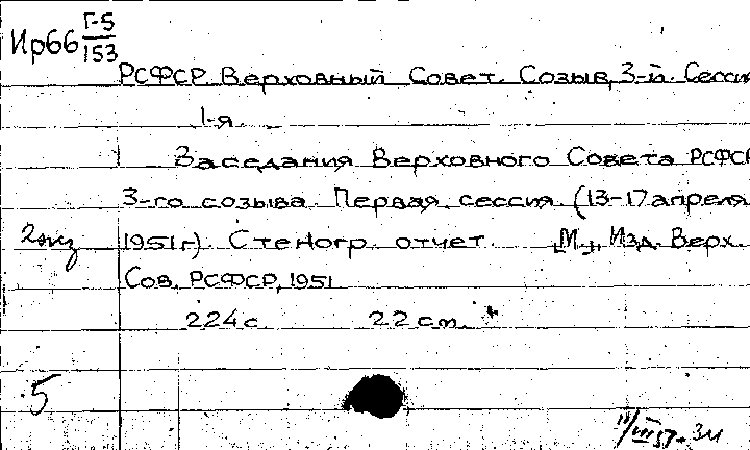 Ир66 Г-5/153
РСФСР. Верховный Совет. Созыв, 3-й. Сессия
1-я.
Заседания Верховного Совета РСФСР
3-го созыва. Первая сессия (13-17 апреля
2 экз 1951г.) Стеногр. отчет. [М.], Изд. Верх.
Сов. РСФСР, 1951.
224 с. 22 см.
5